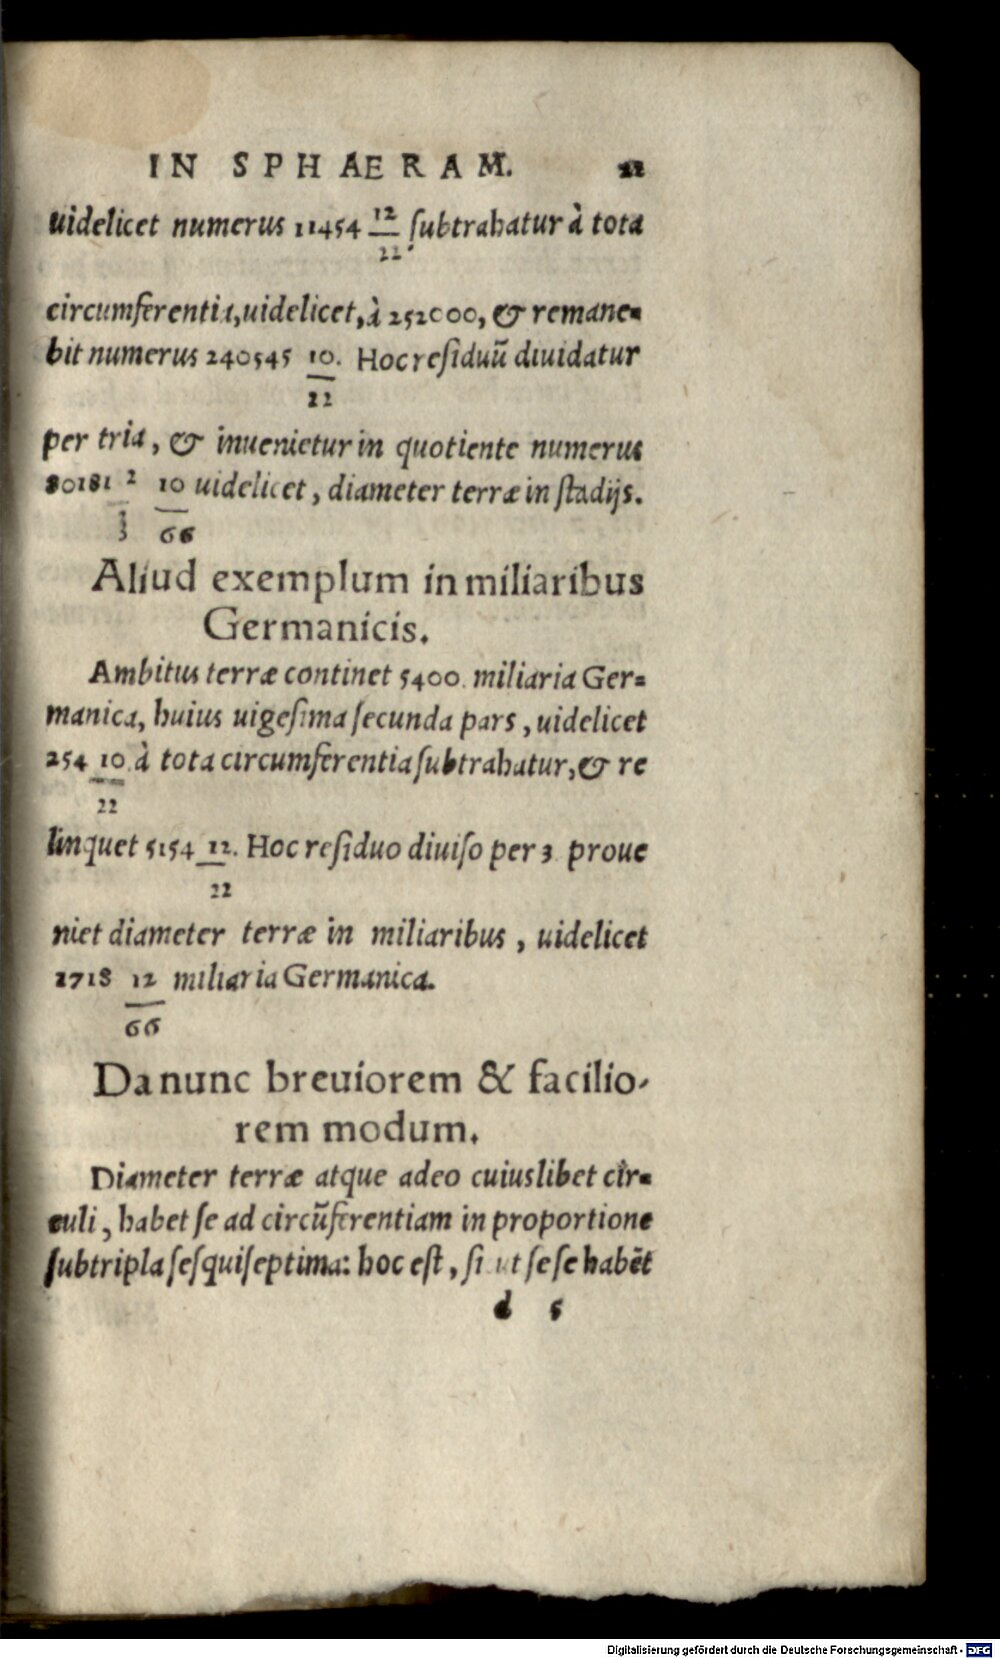 IN SPHAERAM. 22
uidelicet numerus 11454 12/22 ſubtrahatur à tota
circumferentia, uidelicet, à 252000, & remane=
bit numerus 240545 10/22. Hoc reſiduũ diuidatur
per tria, & inuenietur in quotiente numerus
80181 2/3 10/66 uidelicet, diameter terræ in ſtadijs.
Aliud exemplum in miliaribus
Germanicis.
Ambitus terræ continet 5400. miliaria Ger=
manica, huius uigeſima ſecunda pars, uidelicet
254 10/22 à tota circumferentia ſubtrahatur, & re
linquet 5154 12/22. Hoc reſiduo diuiſo per 3 proue
niet diameter terræ in miliaribus, uidelicet
1718 12/66 miliaria Germanica.
Da nunc breuiorem & facilio-
rem modum.
Diameter terræ atque adeo cuiuslibet cir=
culi, habet ſe ad circũferentiam in proportione
ſubtripla ſeſquiſeptima: hoc eſt, ſi ut ſeſe habẽt
d 5
Digitalisierung gefördert durch die Deutsche Forschungsgemeinschaft - DFG